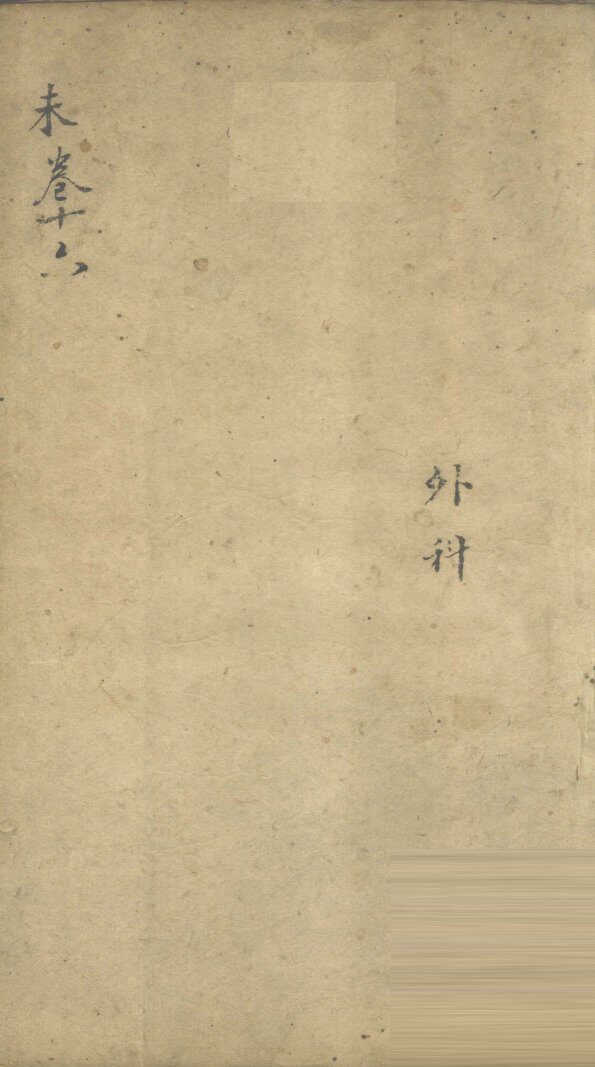 外科
未卷十六